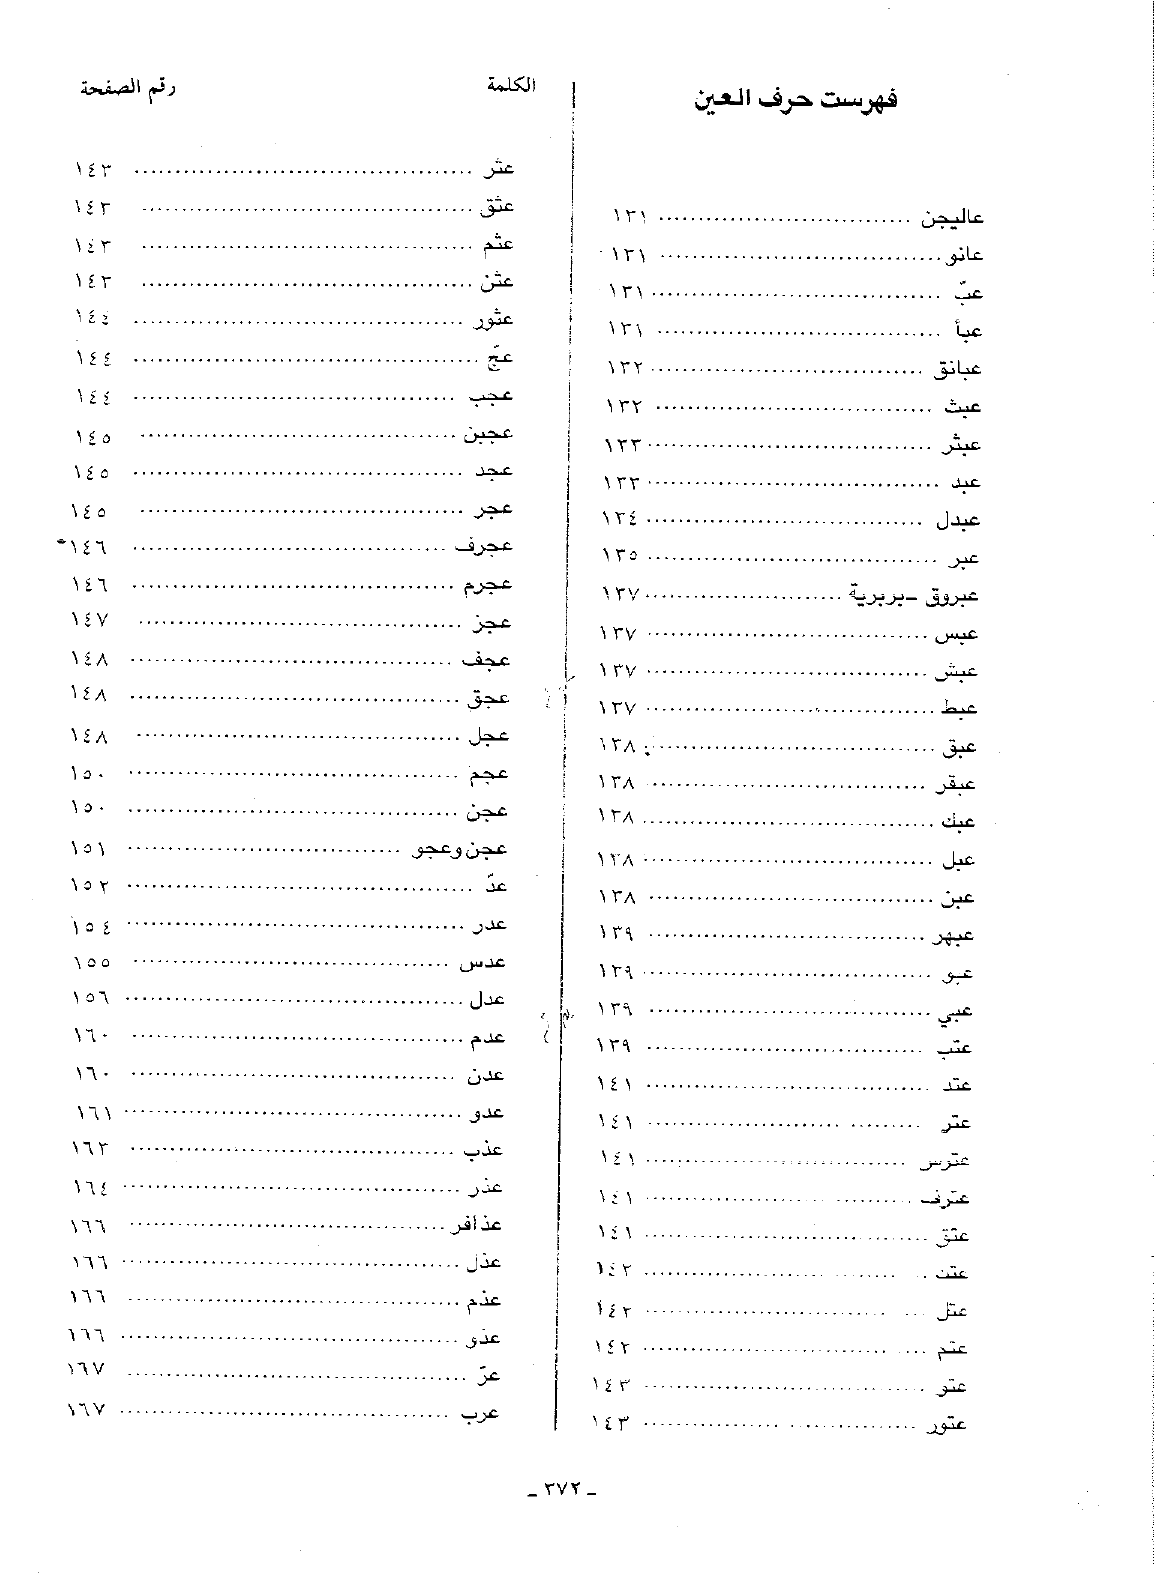 فهرست حرف العين
عاليجن ١٣١
عانو ١٣١
عبّ ١٣١
عبأ ١٣١
عبانق ١٣٢
عبث ١٣٢
عبثر ١٣٣
عبد ١٣٣
عبدل ١٣٤
عبر ١٣٥
عبروق -بربرية ١٣٧
عبس ١٣٧
عبش ١٣٧
عبط ١٣٧
عبق ١٣٨
عبقر ١٣٨
عبك ١٣٨
عبل ١٣٨
عبن ١٣٨
عبهر ١٣٩
عبو ١٣٩
عبي ١٣٩
عتب ١٣٩
عتد ١٤١
عتر ١٤١
عترس ١٤١
عترف ١٤١
عتق ١٤١
عتن ١٤٢
عتل ١٤٢
عتم ١٤٢
عتو ١٤٣
عتور ١٤٣
الكلمة رقم الصفحة
عثر ١٤٣
عثق ١٤٣
عثم ١٤٣
عثن ١٤٣
عثور ١٤٤
عجّ ١٤٤
عجب ١٤٤
عجبن ١٤٥
عجد ١٤٥
عجر ١٤٥
عجرف ١٤٦
عجرم ١٤٦
عجز ١٤٧
عجف ١٤٨
عجق ١٤٨
عجل ١٤٨
عجم ١٥٠
عجن ١٥٠
عجن وعجو ١٥١
عدّ ١٥٢
عدر ١٥٤
عدس ١٥٥
عدل ١٥٦
عدم ١٦٠
عدن ١٦٠
عدو ١٦١
عذب ١٦٣
عذر ١٦٤
عذافر ١٦٦
عذل ١٦٦
عذم ١٦٦
عذو ١٦٦
عزّ ١٦٧
عرب ١٦٧
ـ ٣٧٢ ـ